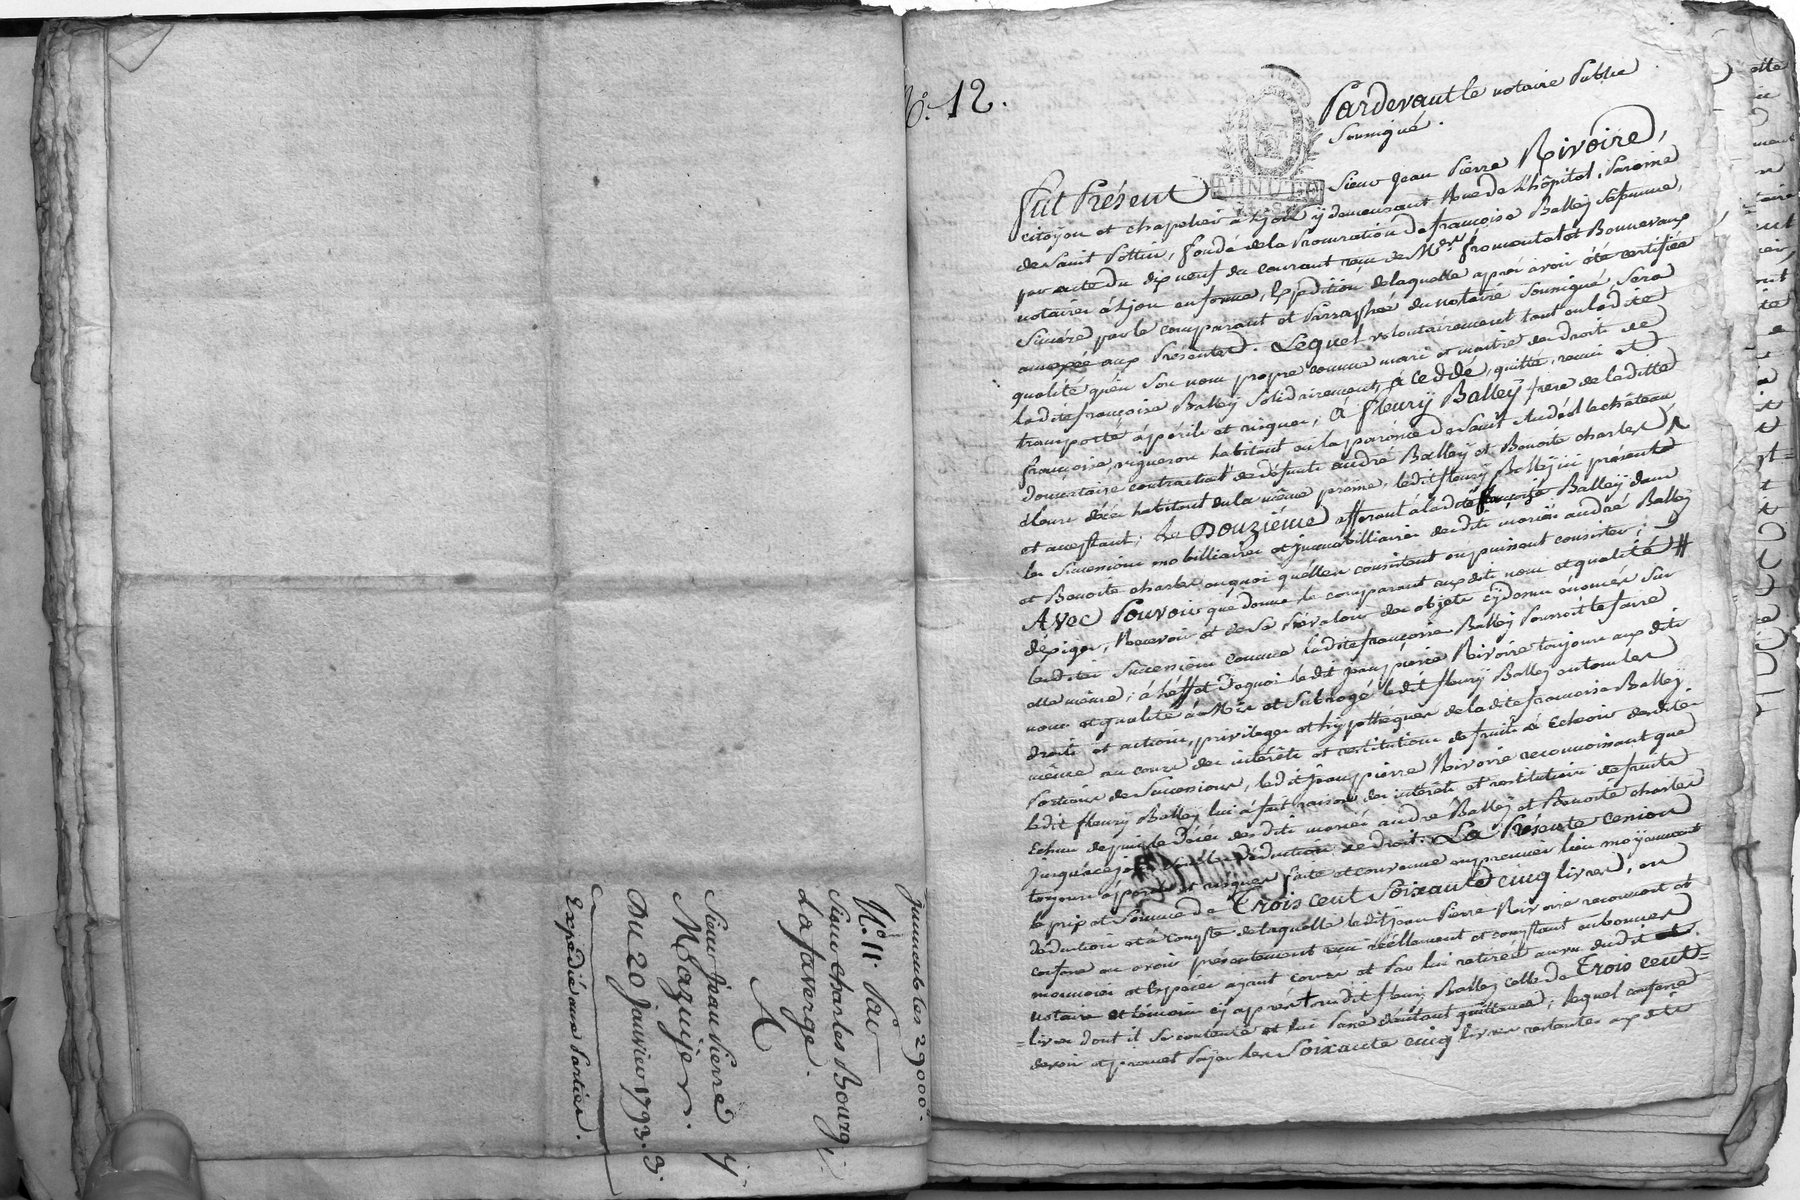 Immeubles 29000#
N.° 11. Par
Sieur Charles Bourg
Lafaverge.
A
Sieur Jean Pierre
Mazuyer.
Du 20 Janvier 1793. 3
Expédié aux Parties.
N.° 12.
Pardevant le notaire Public
Soussigné.
MINUTE
fut Présent Sieur Jean Pierre Rivoire,
citoyen et chapelier à Lyon ÿ demeurant Rue de L'hôpital, Paroisse
de Saint Pottin, fondé de la Procuration de françoise Balleÿ Sa femme,
par acte du dix neuf du courant reçu de Mdes fromental et Bonnevaux
notaires à Lyon en forme, Expédition de laquelle après avoir été certifiée
Sincère par le comparant et Parraphée du notaire Soussigné, Sera
annexée aux Présentes. Lequel volontairement tant en ladite
qualité qu'en Son nom propre comme mari et maitre des droits de
ladite françoise Balleÿ Solidairement, à ceddé, quitté, remis et
transporté à périls et risques, à fleurÿ Balleÿ frere de laditte
françoise, vigneron habitant en la paroisse de Saint André le château
donnataire contractuel de défunts andré Balleÿ et Benoite charles
à leurs décès habitant en la même paroisse, ledit fleurÿ Balleÿ ici présent
et acceptant; Le Douziéme afférant à ladite françoise Balleÿ dans
les Successions mobilliaires et jmmobilliaires desdits mariés andré Balleÿ
et Benoite charles en quoi qu'elles consistent ou puissent consister;
Avec Pouvoir que donne le comparant auxdits nom et qualité #
d'exiger, Recevoir et de Se Prévaloir des objets cÿ dessus énoncés Sur
lesdites Successions comme ladite françoise Balleÿ Pourroit le faire
elle même; à l'éffet de quoi ledit jean pierre Rivoire toujours auxdits
nom et qualité à Mis et Subrogé ledit fleurÿ Balleÿ en tous les
droits et actions, privileges et hÿpothéques de ladite francoise Balleÿ
même au cours des intérêts et restitution de fruits à Echeoir desdites
Portions de Successions, ledit jean pierre Rivoire reconnoissant que
ledit fleurÿ Balleÿ lui à fait raison des intérêts et restitution de fruits
Echus depuis le Décès desdits mariés andré Balleÿ et Benoite charles
jusqu'à ce jour déduction de droit. La Présente cession
toujours à périls et risques faite et convenue en premier lieu moÿennant
le prix et Somme de Trois cent Soixante cinq livres, en
déduction et à Compte de laquelle ledit jean Pierre Rivoire reconnoit et
confesse en avoir présentement reçu réellement et comptant en bonnes
monnoies et Espèces aÿant cours et Par lui retirées au vu dudit
notaire et témoins cÿ après + dudit fleurÿ Balleÿ celle de Trois cent
livres dont il Se contente et lui Passe d'autant quittance, lequel confesse
devoir et promet Paÿer les Soixante cinq livres restantes auxdits